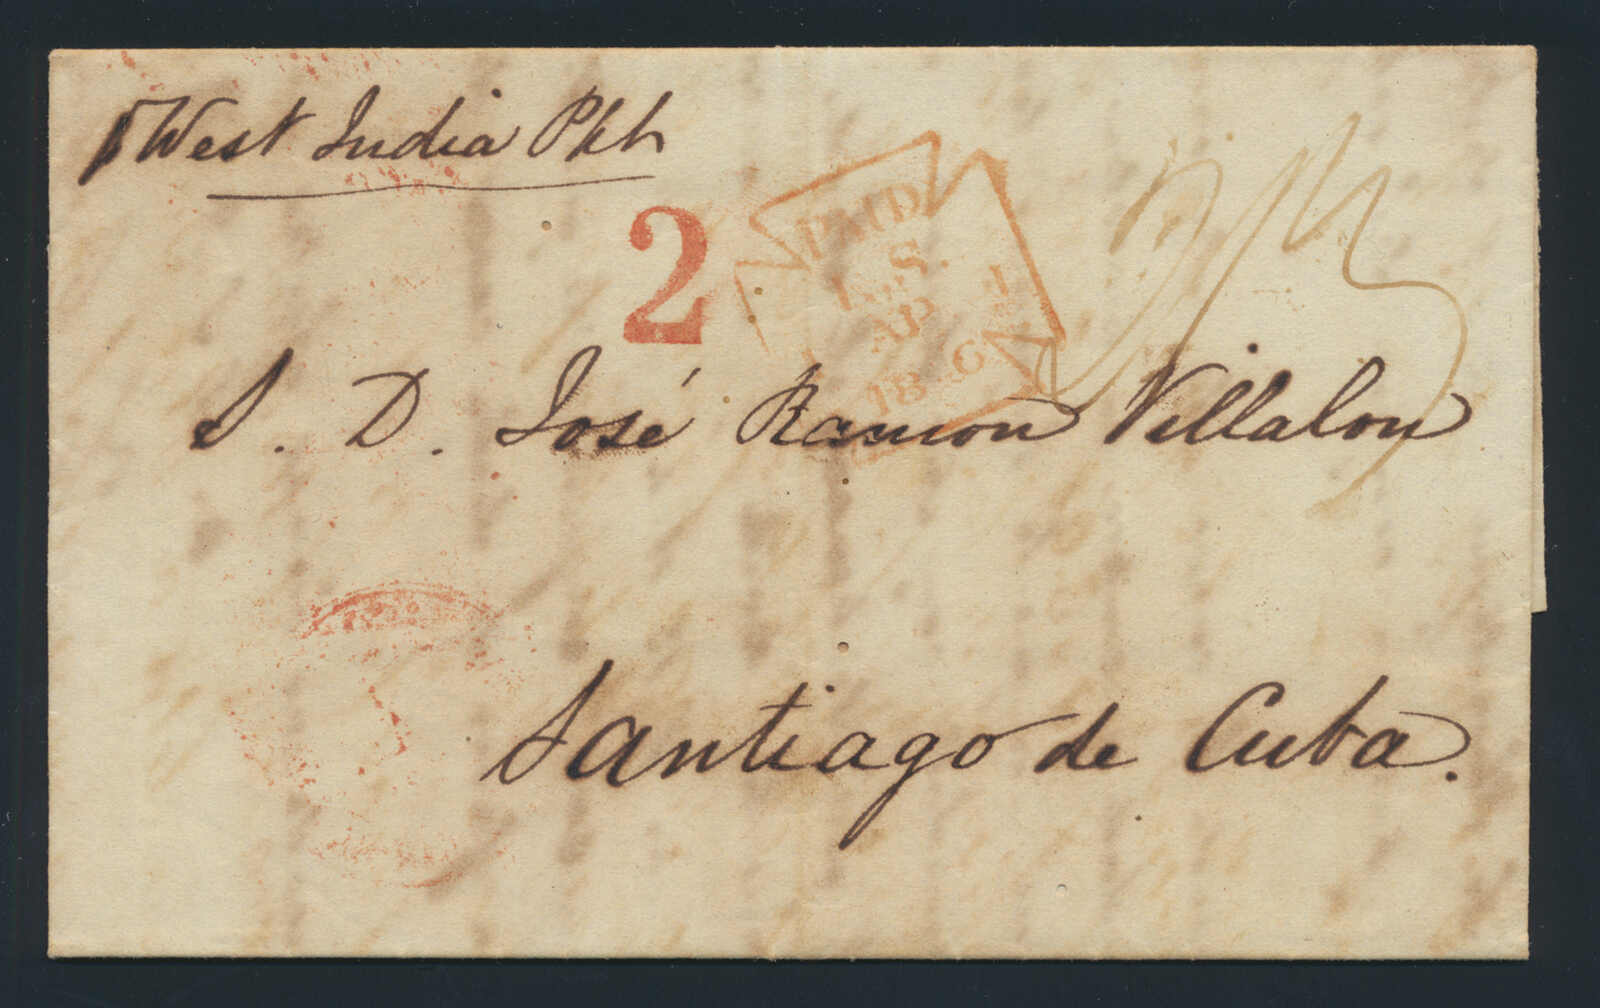 West India Pkt
2
PAID
L.S.
AP 1
18 6
2/3
S. D. José Ramon Villalon
Santiago de Cuba.